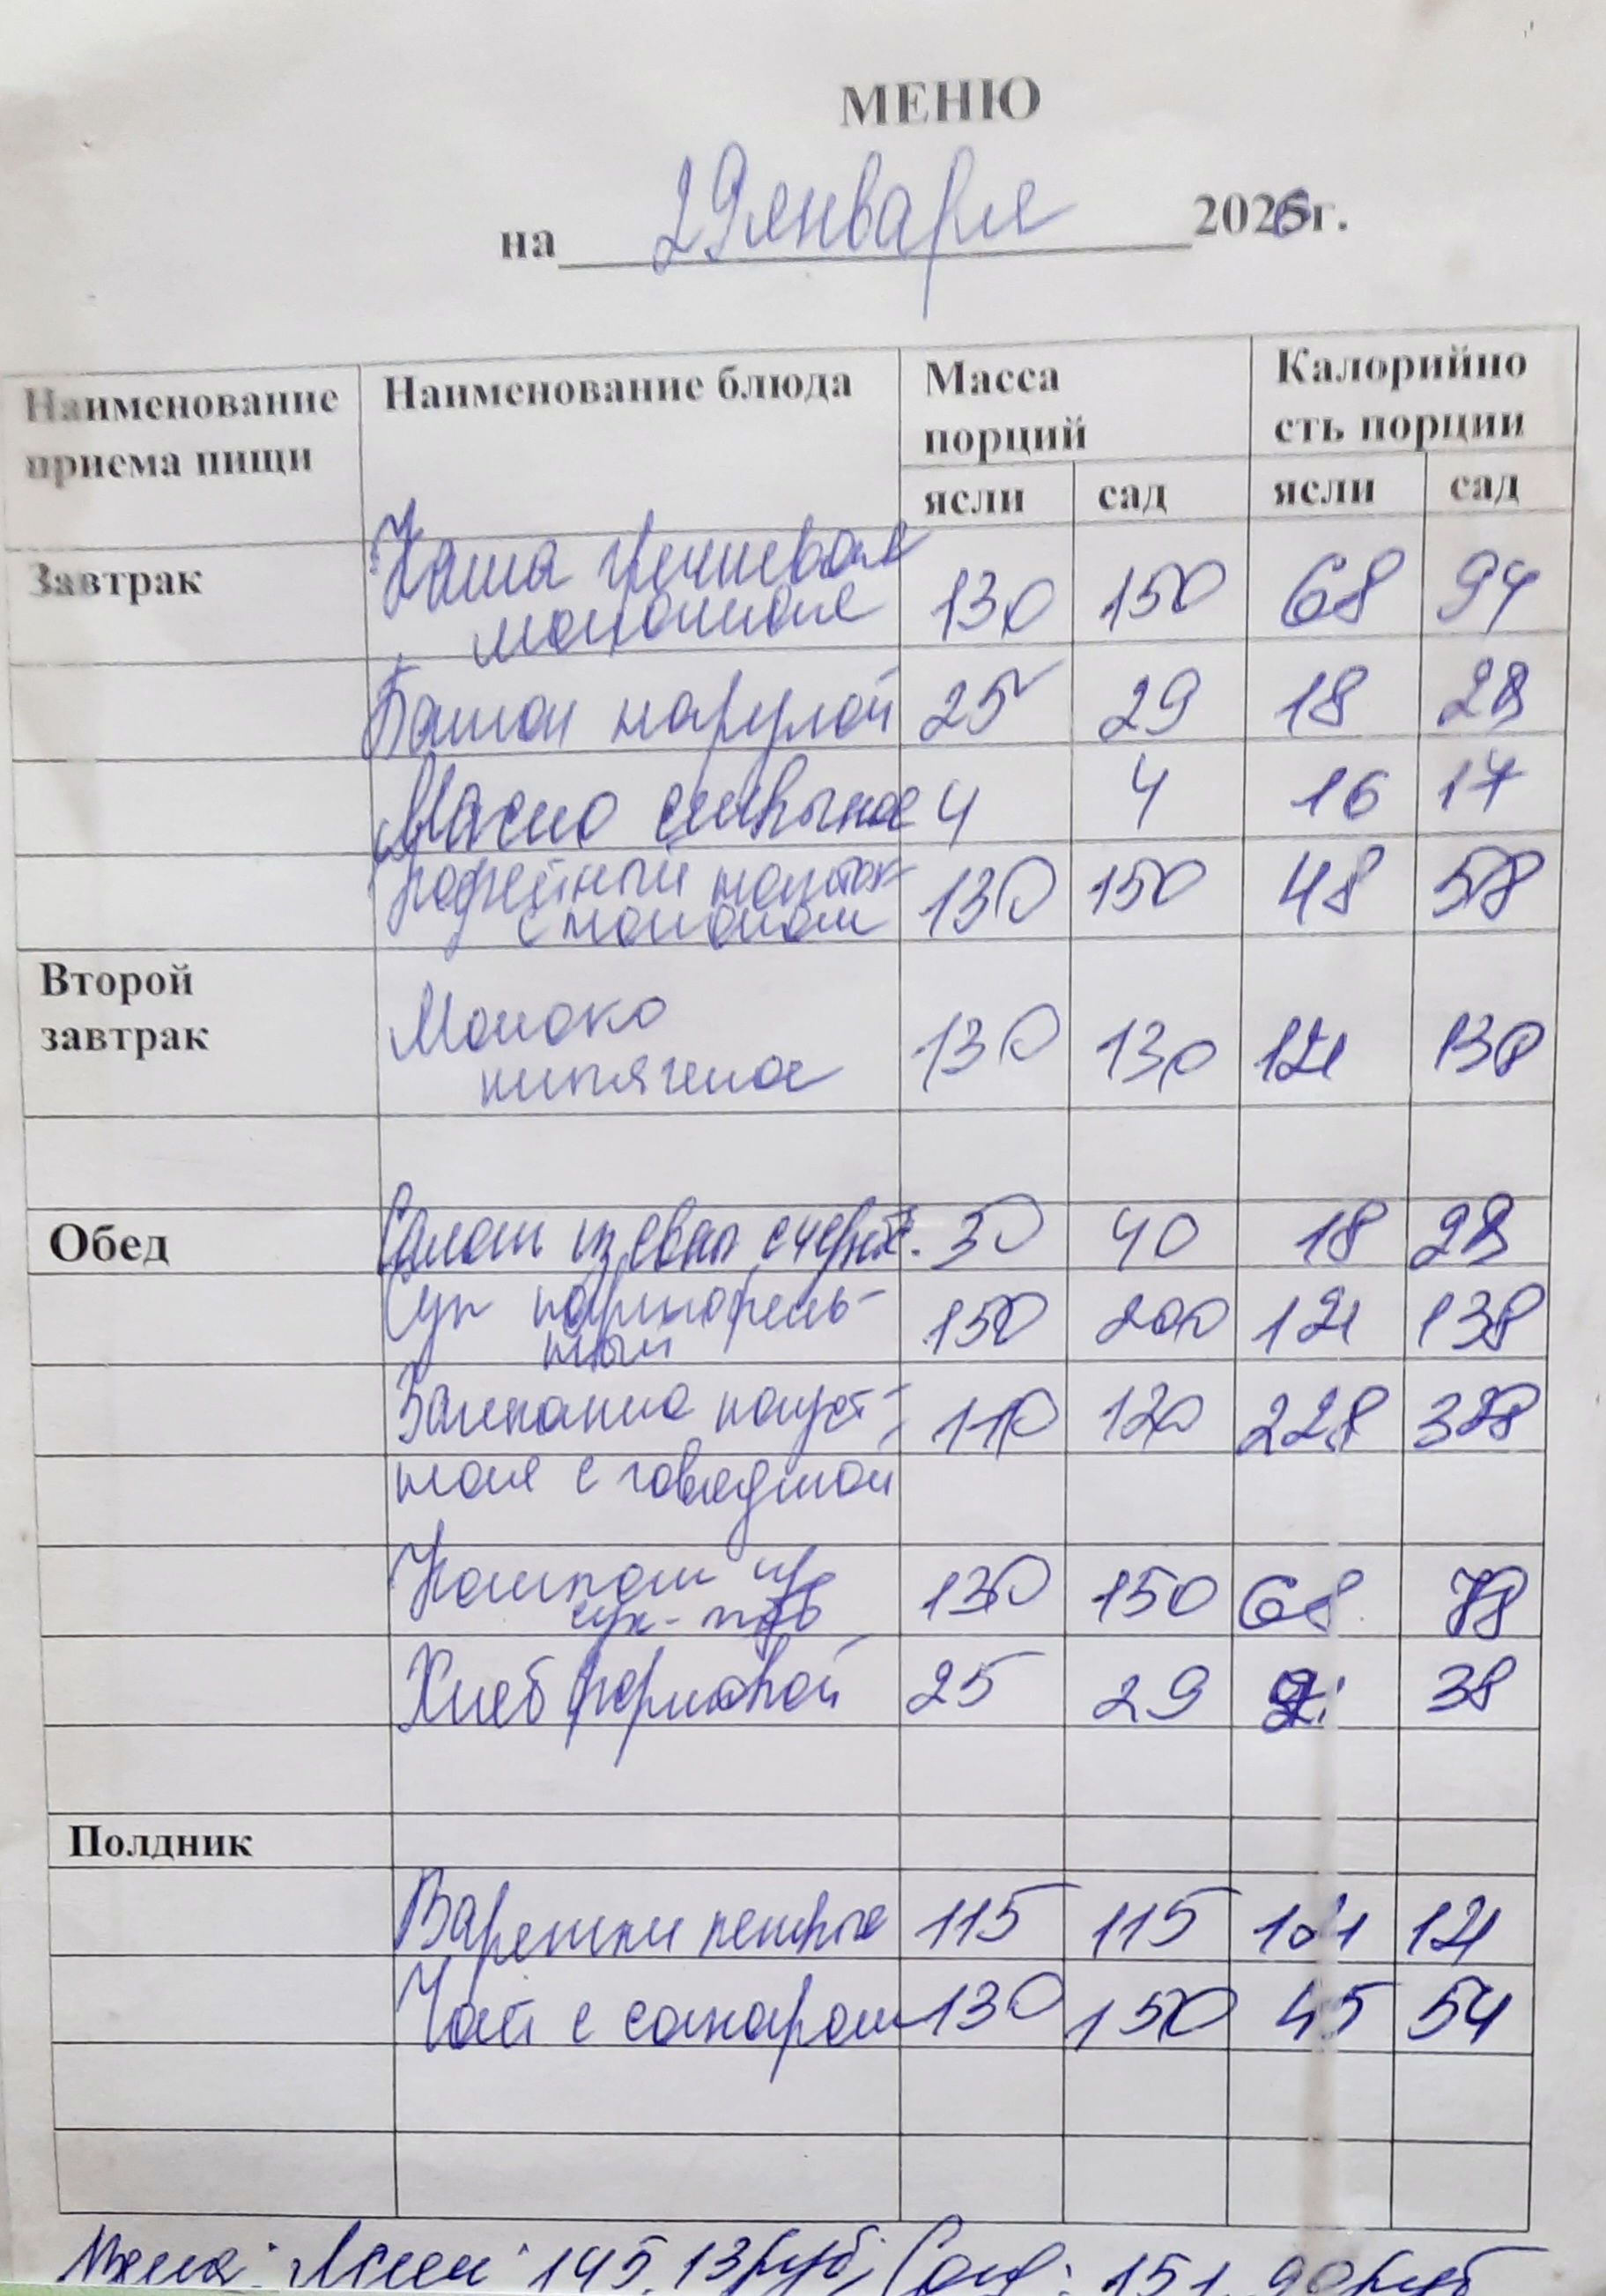 МЕНЮ
на 29 января 2026г.
Наименование приема пищи Наименование блюда Масса порций Калорийно сть порции
ясли сад ясли сад
Завтрак Каша гречневая молочная 130 150 68 94
Батон нарезной 25 29 18 28
Масло сливочное 4 4 16 17
Кофейный напиток с молоком 130 150 48 58
Второй завтрак Молоко кипяченое 130 130 121 130
Обед Салат из свек с черн. 30 40 18 28
Суп картофель-
ный 150 200 121 138
Запеканка капуст- 110 120 228 328
ная с говядиной
Компот из
сух-фр 130 150 68 78
Хлеб формовой 25 29 38
Полдник
Вареники ленивые 115 115 121 121
Чай с сахаром 130 150 45 54
Цена: Ясли: 145,13 руб; Сад: 151,90 руб